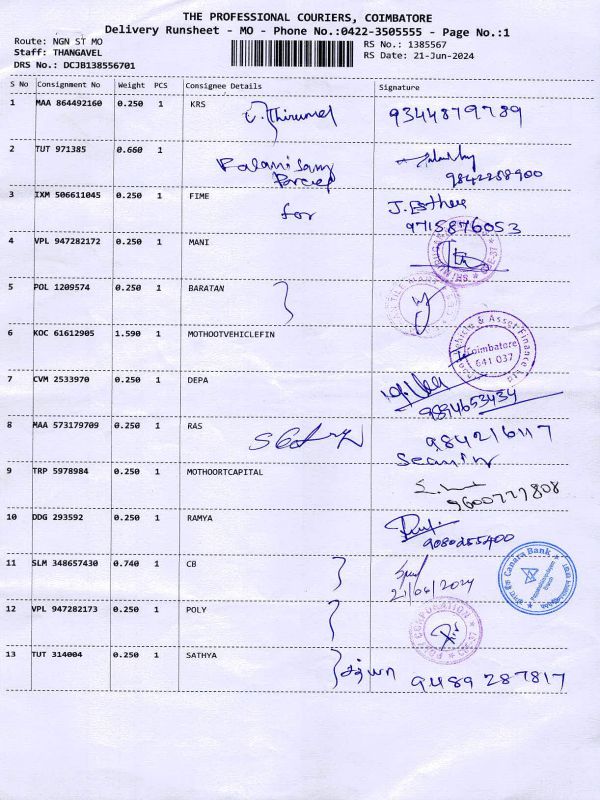 THE PROFESSIONAL COURIERS, COIMBATORE
Delivery Runsheet - MO - Phone No.:0422-3505555 - Page No.:1
Route: NGN ST MO
Staff: THANGAVEL
DRS No.: DCJB138556701
RS No.: 1385567
RS Date: 21-Jun-2024
S No Consignment No Weight PCS Consignee Details Signature
1 MAA 864492160 0.250 1 KRS
V. Thirumal 9344879789
2 TUT 971385 0.660 1
Palanisamy
9842258900
3 IXM 506611045 0.250 1 FIME
for J. Esther
9715876053
4 VPL 947282172 0.250 1 MANI
5 POL 1209574 0.250 1 BARATAN
6 KOC 61612905 1.590 1 MOTHOOTVEHICLEFIN
Vehicle & Asset Finance Ltd
Coimbatore
641 037
7 CVM 2533970 0.250 1 DEPA
9894653434
8 MAA 573179709 0.250 1 RAS
984216117
9 TRP 5978984 0.250 1 MOTHOORTCAPITAL
9600727808
10 DDG 293592 0.250 1 RAMYA
9080255400
11 SLM 348657430 0.740 1 CB
21/06/2024
Canara Bank
12 VPL 947282173 0.250 1 POLY
CORPORATION
CBE-37
13 TUT 314004 0.250 1 SATHYA
சத்யா 9489 287817